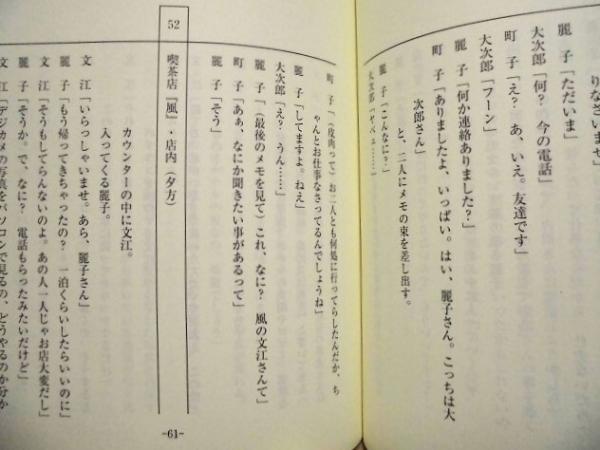 りなさいませ」
麗　子「ただいま」
大次郎「何？　今の電話」
町　子「え？　あ、いえ。友達です」
大次郎「フーン」
麗　子「何か連絡ありました？」
町　子「ありましたよ、いっぱい。はい、麗子さん。こっちは大
次郎さん」
と、二人にメモの束を差し出す。
麗　子「こんなに？」
大次郎「ヤベェ……」
町　子「（皮肉って）お二人とも何処に行ってらしたんだか、ち
ゃんとお仕事なさってるんでしょうね」
麗　子「してますよ。ねえ」
大次郎「え？　うん……」
麗　子「（最後のメモを見て）これ、なに？　風の文江さんて」
町　子「あぁ、なにか聞きたい事があるって」
麗　子「そう」
52　喫茶店『風』・店内（夕方）
カウンターの中に文江。
入ってくる麗子。
文　江「いらっしゃいませ。あら、麗子さん」
麗　子「もう帰ってきちゃったの？　一泊くらいしたらいいのに」
文　江「そうもしてらんないのよ。あの人一人じゃお店大変だし」
麗　子「そうか。で、なに？　電話もらったみたいだけど」
文　江「デジカメの写真をパソコンで見るの、どうやるのか分か
-61-